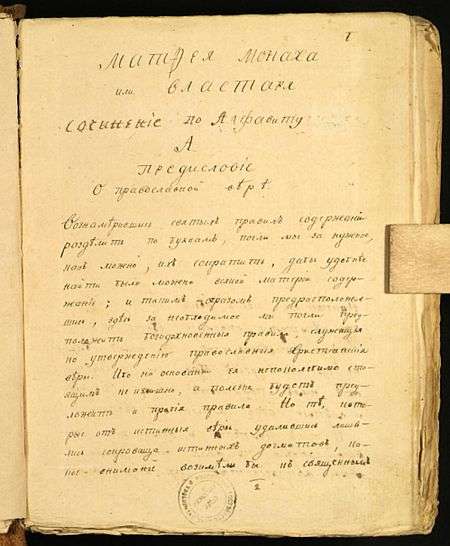 I
Матѳея Монаха
или Властаря
Сочиненіе по Алфавиту
А
Предисловіе
О православной вѣрѣ.
Вознамѣрившись святыхъ правилъ содержаніе
раздѣлить по буквамъ, почли мы за нужное,
какъ можно, ихъ сократить, дабы удобнѣе
найти было можно всякой матеріи содер-
жаніе; и такимъ образомъ предрасположив-
шись, здѣсь за необходимое мы почли пред-
положить богодухновенныя правила, служащія
ко утвержденію православныя христіанскія
вѣры. Ибо на основаніи ея непоколебимо сто-
ящимъ не излишно, а полезно будетъ пред-
ложить и прочія правила. Но тѣ, кото-
рые отъ истинныя вѣры удалившись лиши-
лись сокровища истинныхъ догматовъ, ка-
кое вниманіе возимѣли бы къ священнымъ
2